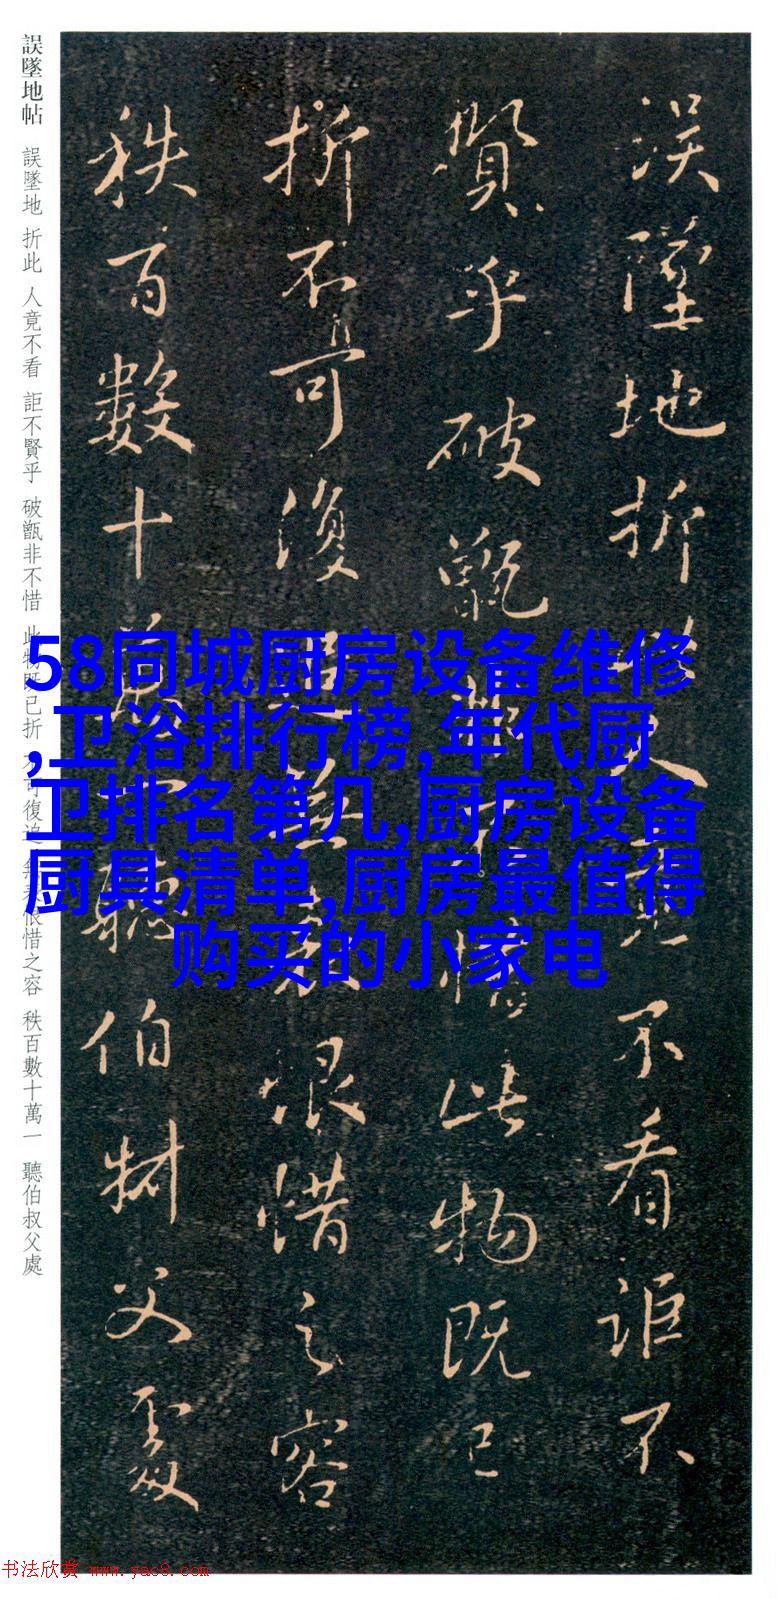 誤墜地帖 誤墜地 折此 人竟不看 詎不賢乎 破甑非不惜 此物既已折 不可復追 無表恨惜之容 秩百數十萬一 聽伯叔父處
誤墜地折此人竟不看詎不
賢乎破甑非不惜此物既已
折不可復追無表恨惜之容
秩百數十萬一聽伯叔父處
58同城厨房设备维修
,卫浴排行榜,年代厨
卫排名第几,厨房设备
厨具清单,厨房最值得
购买的小家电
书法欣赏 www.yac8.com